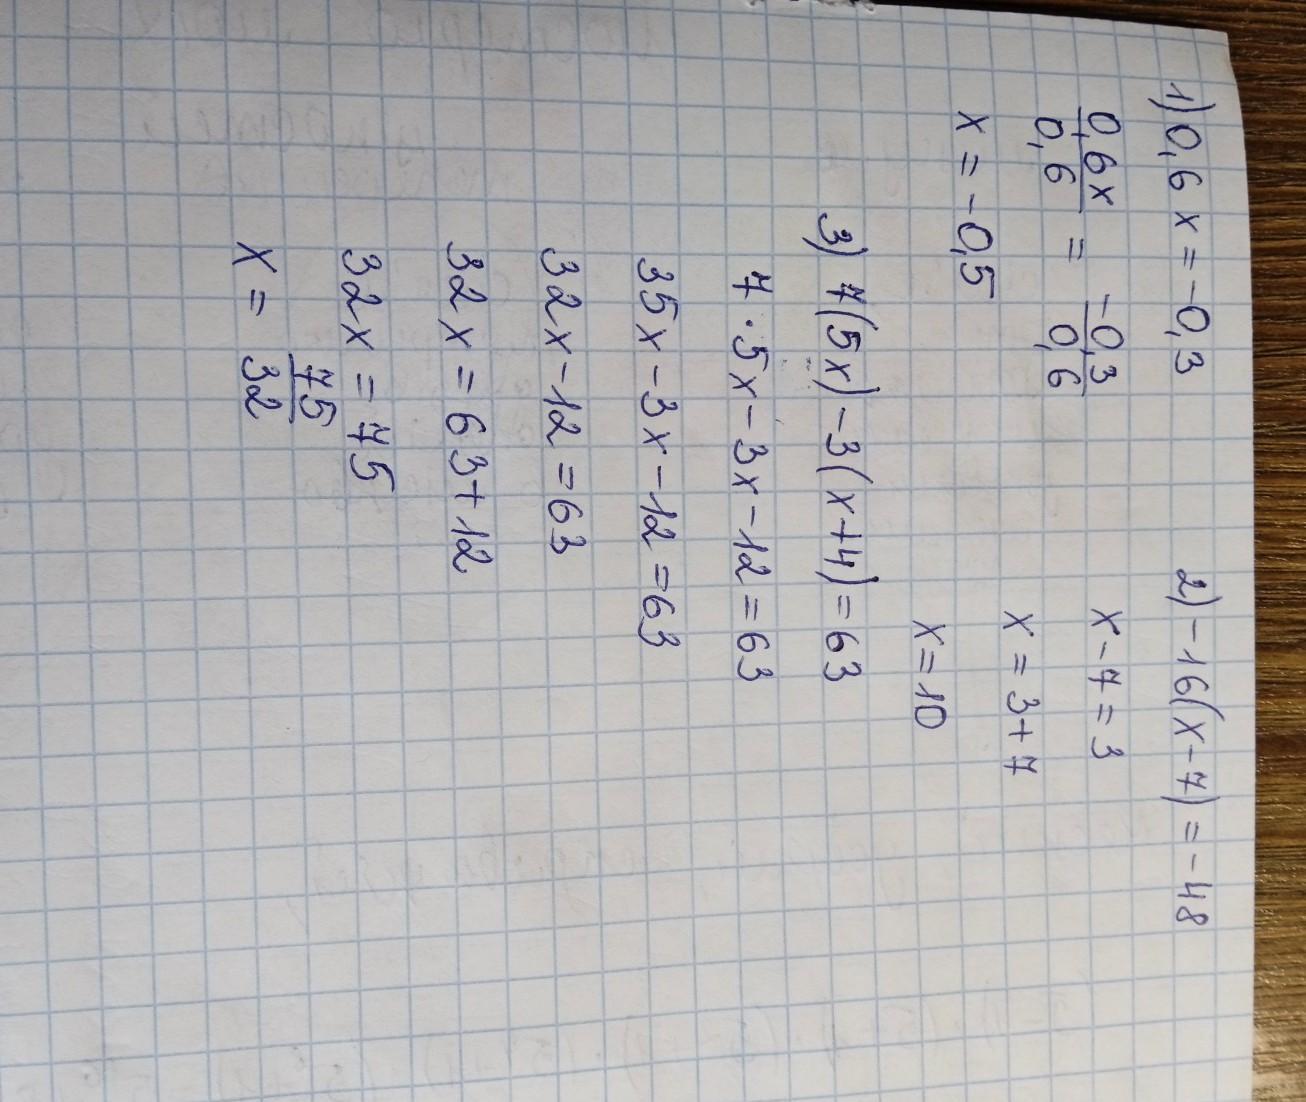 1) 0,6x = -0,3
0,6x / 0,6 = -0,3 / 0,6
x = -0,5
2) -16(x-7) = -48
x-7=3
x=3+7
x=10
3) 7(5x)-3(x+4)=63
7·5x-3x-12=63
35x-3x-12=63
32x-12=63
32x=63+12
32x=75
x= 75/32